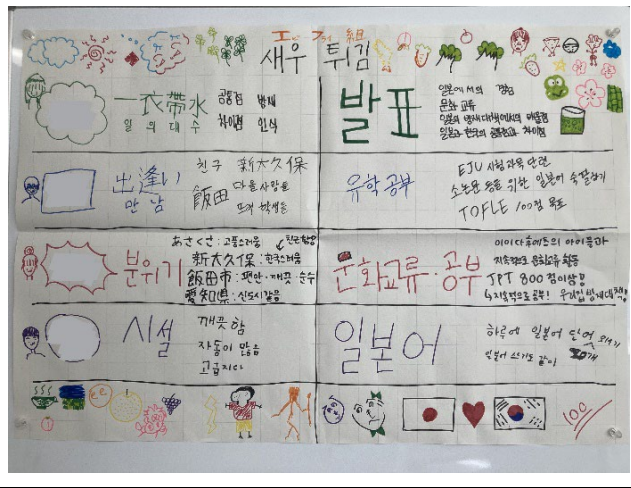 エビフライ 組
새우 튀김
一衣帶水
일 의 대 수
공통점 방재
차이점 인식
발표
일본에서의 경험
문화 교류
일본의 방재대책에서의 배울점
일본과 한국의 공통점과 차이점
出逢い
만 남
친구 新大久保
飯田 마을 사람들
또래 학생들
유학 공부
EJU 시험과목 단련
소논문 등을 위한 일본어 숙달하기
TOFLE 100점 목표
분위기
あさくさ : 고풍스러움
新大久保 : 한국스러움
飯田市 : 편안·깨끗·순수
愛知県 : 신도시같음
문화교류·공부
이이다휴에즈의 아이들과
지속적으로 문화교류 활동
JPT 800점이상!
↳지속적으로 공부! 우리집 방재대책!
시설
깨끗함
자동이 많음
고급지다
일본어
하루에 일본어 단어 외우기
일본어 쓰기도 같이 20개
100